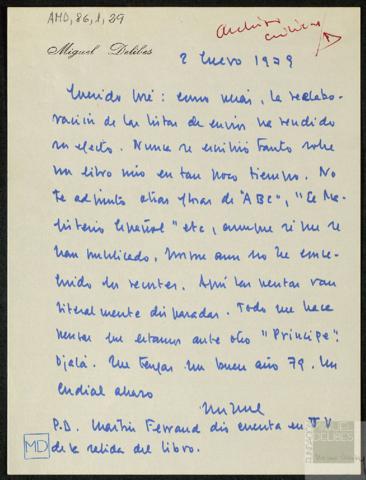 AMD, 86, 1, 29
Archivo
Miguel Delibes
2 Enero 1979
Querido José: como verás, la reelabo-
ración de las listas de envío ha rendido
su efecto. Nunca se escribió tanto sobre
un libro mío en tan poco tiempo. No
te adjunto otras glosas de "ABC", "El Ma-
gisterio Español" etc, aunque sí me
han publicado, porque aún no he conse-
guido los recortes. Aquí las ventas van
literalmente disparadas. Todo me hace
pensar que estamos ante otro "Príncipe".
Ojalá. Que tengas un buen año 79. Un
cordial abrazo
Miguel
P.D. Martín Ferrand dio cuenta en TV
de la salida del libro.
MD
MIGUEL
DELIBES